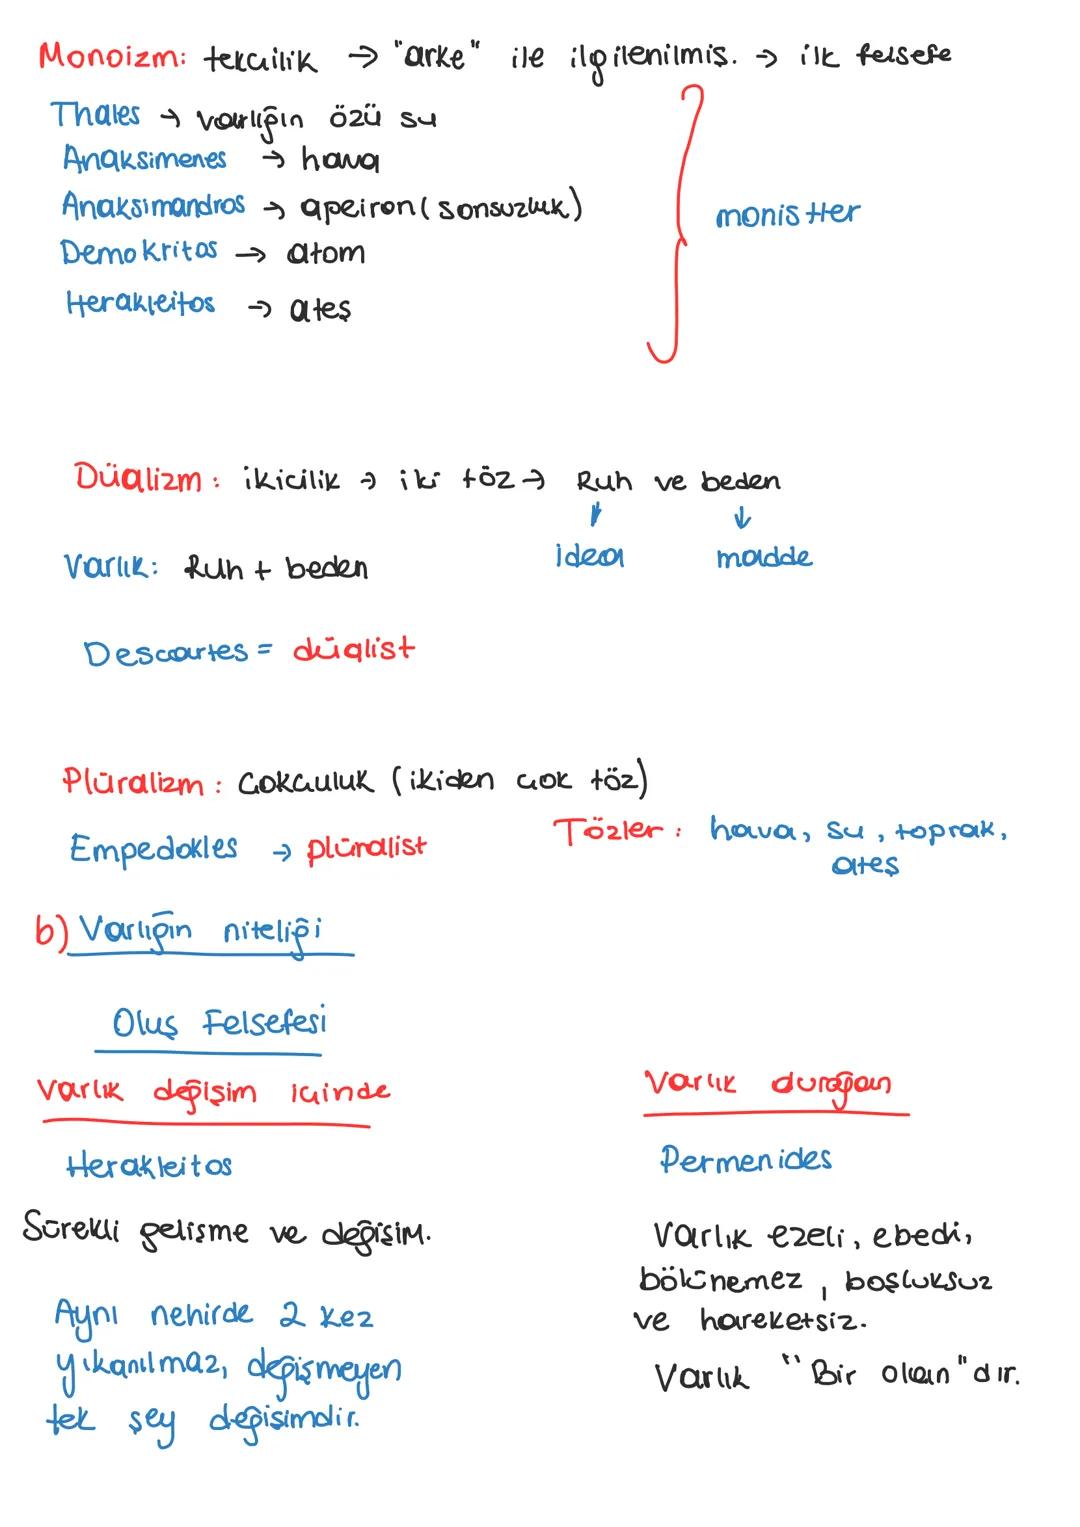 Monoizm: tekçilik → "arke" ile ilgilenilmiş. → ilk felsefe
Thales → varlığın özü su
Anaksimenes → hava
Anaksimandros → apeiron (sonsuzluk)
monistler
Demokritos → atom
Herakleitos → ateş
Düalizm: ikicilik → iki töz → Ruh ve beden
idea madde
Varlık: Ruh + beden
Descartes = düalist
Plüralizm: Çokçuluk (ikiden çok töz)
Empedokles → plüralist
Tözler: hava, su, toprak,
ateş
b) Varlığın niteliği
Oluş Felsefesi
Varlık değişim içinde
Herakleitos
Sürekli gelişme ve değişim.
Aynı nehirde 2 kez
yıkanılmaz, değişmeyen
tek şey değişimdir.
Varlık durağan
Permenides
Varlık ezeli, ebedi,
bölünemez, boşluksuz
ve hareketsiz.
Varlık "Bir olan"dır.